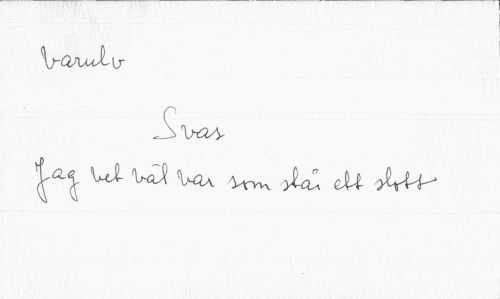 Varulv
Svas
Jag vet väl var som står ett slott